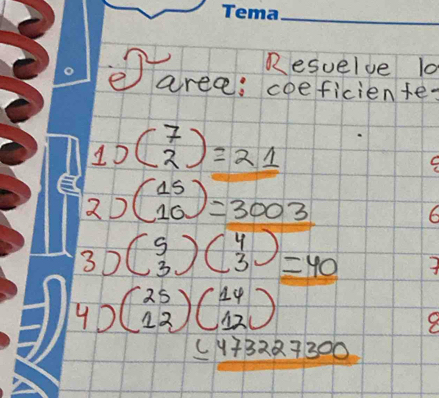 Tema
Resuelve lo
Tarea: coeficiente-
1) (7 2) = 21
2) (15 10) = 3003
3) (5 3) (4 3) = 40
4) (25 12) (14 12)
= 473227300